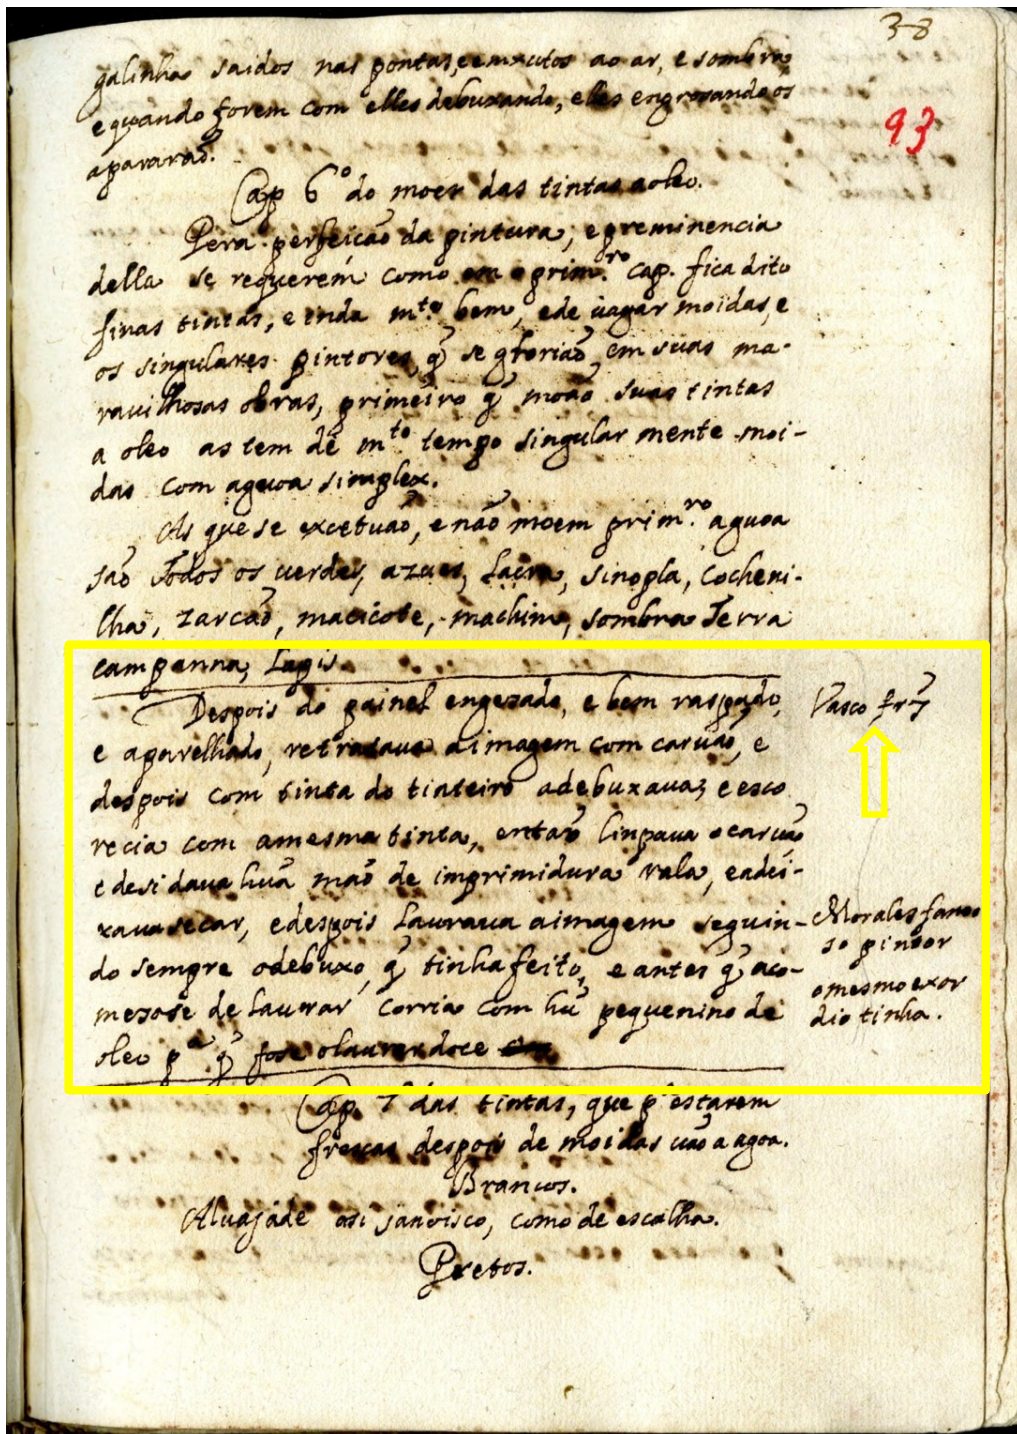 38
93
galinha saidos nas pontas, e emxutos ao ar, e sombra,
e quando forem com elles debuxando, elles engrosando os
apararaõ.
Cap 6º do moer das tintas a oleo.
Pera perfeicaõ da pintura, e preminencia
della se requerem como em o prim.ro cap. fica dito
finas tintas, e inda m.to bem, e de vagar moidas, e
os singulares pintores, q̃ se gloriaõ em suas ma-
ravilhosas obras, primeiro q̃ moaõ suas tintas
a oleo as tem de m.to tempo singular mente moi-
das com aguoa simplex.
As que se excetuaõ, e não moem prim.ro aguoa
saõ Todos os verdes, azues, Lacra, sinopla, Cocheni-
lha, zarcaõ, macicote, machim, sombra Terra
campanna, Lapis.
Despois do painel engesado, e bem raspado,
e aparelhado, retratava a imagem com carvaõ, e
despois com tinta do tinteiro a debuxava, e esco
recia com a mesma tinta, entaõ linpava o carvaõ
e desi dava huã maõ de imprimidura rala, e a dei-
xava secar, e despois Lavrava a imagem seguin-
do sempre o debuxo, q̃ tinha feito, e antes q̃ aco-
mesase de Lavrar corria com hũ pequenino de
oleo p.a q̃ fose o laurar doce
Vasco Frz̃
Morales famo
so pintor
o mesmo exor
dio tinha.
Cap. 7 das tintas, que p.a estarem
frescas despois de moidas vaõ a agoa.
Brancos.
Alvajade asi janoisco, como de escalha.
Pretos.